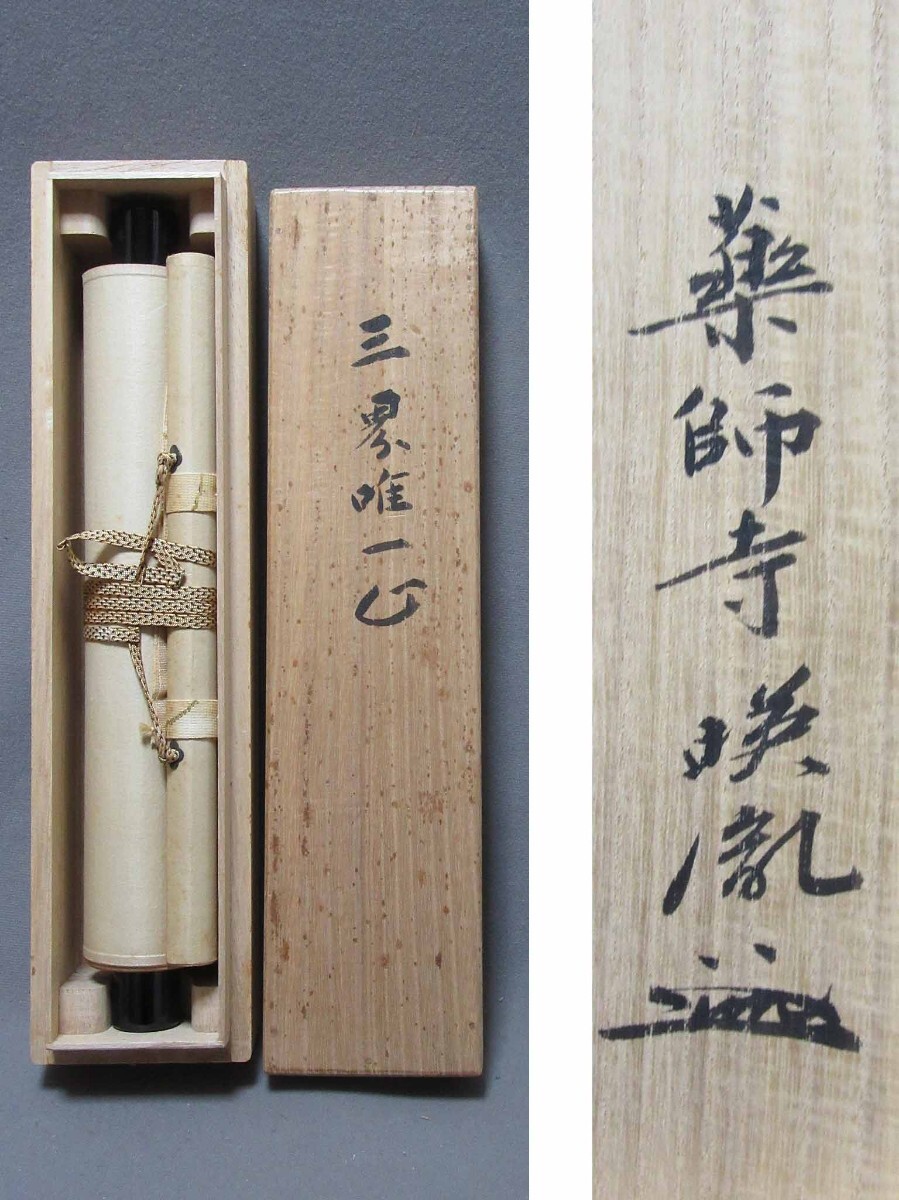 三界唯一心
薬師寺暎胤